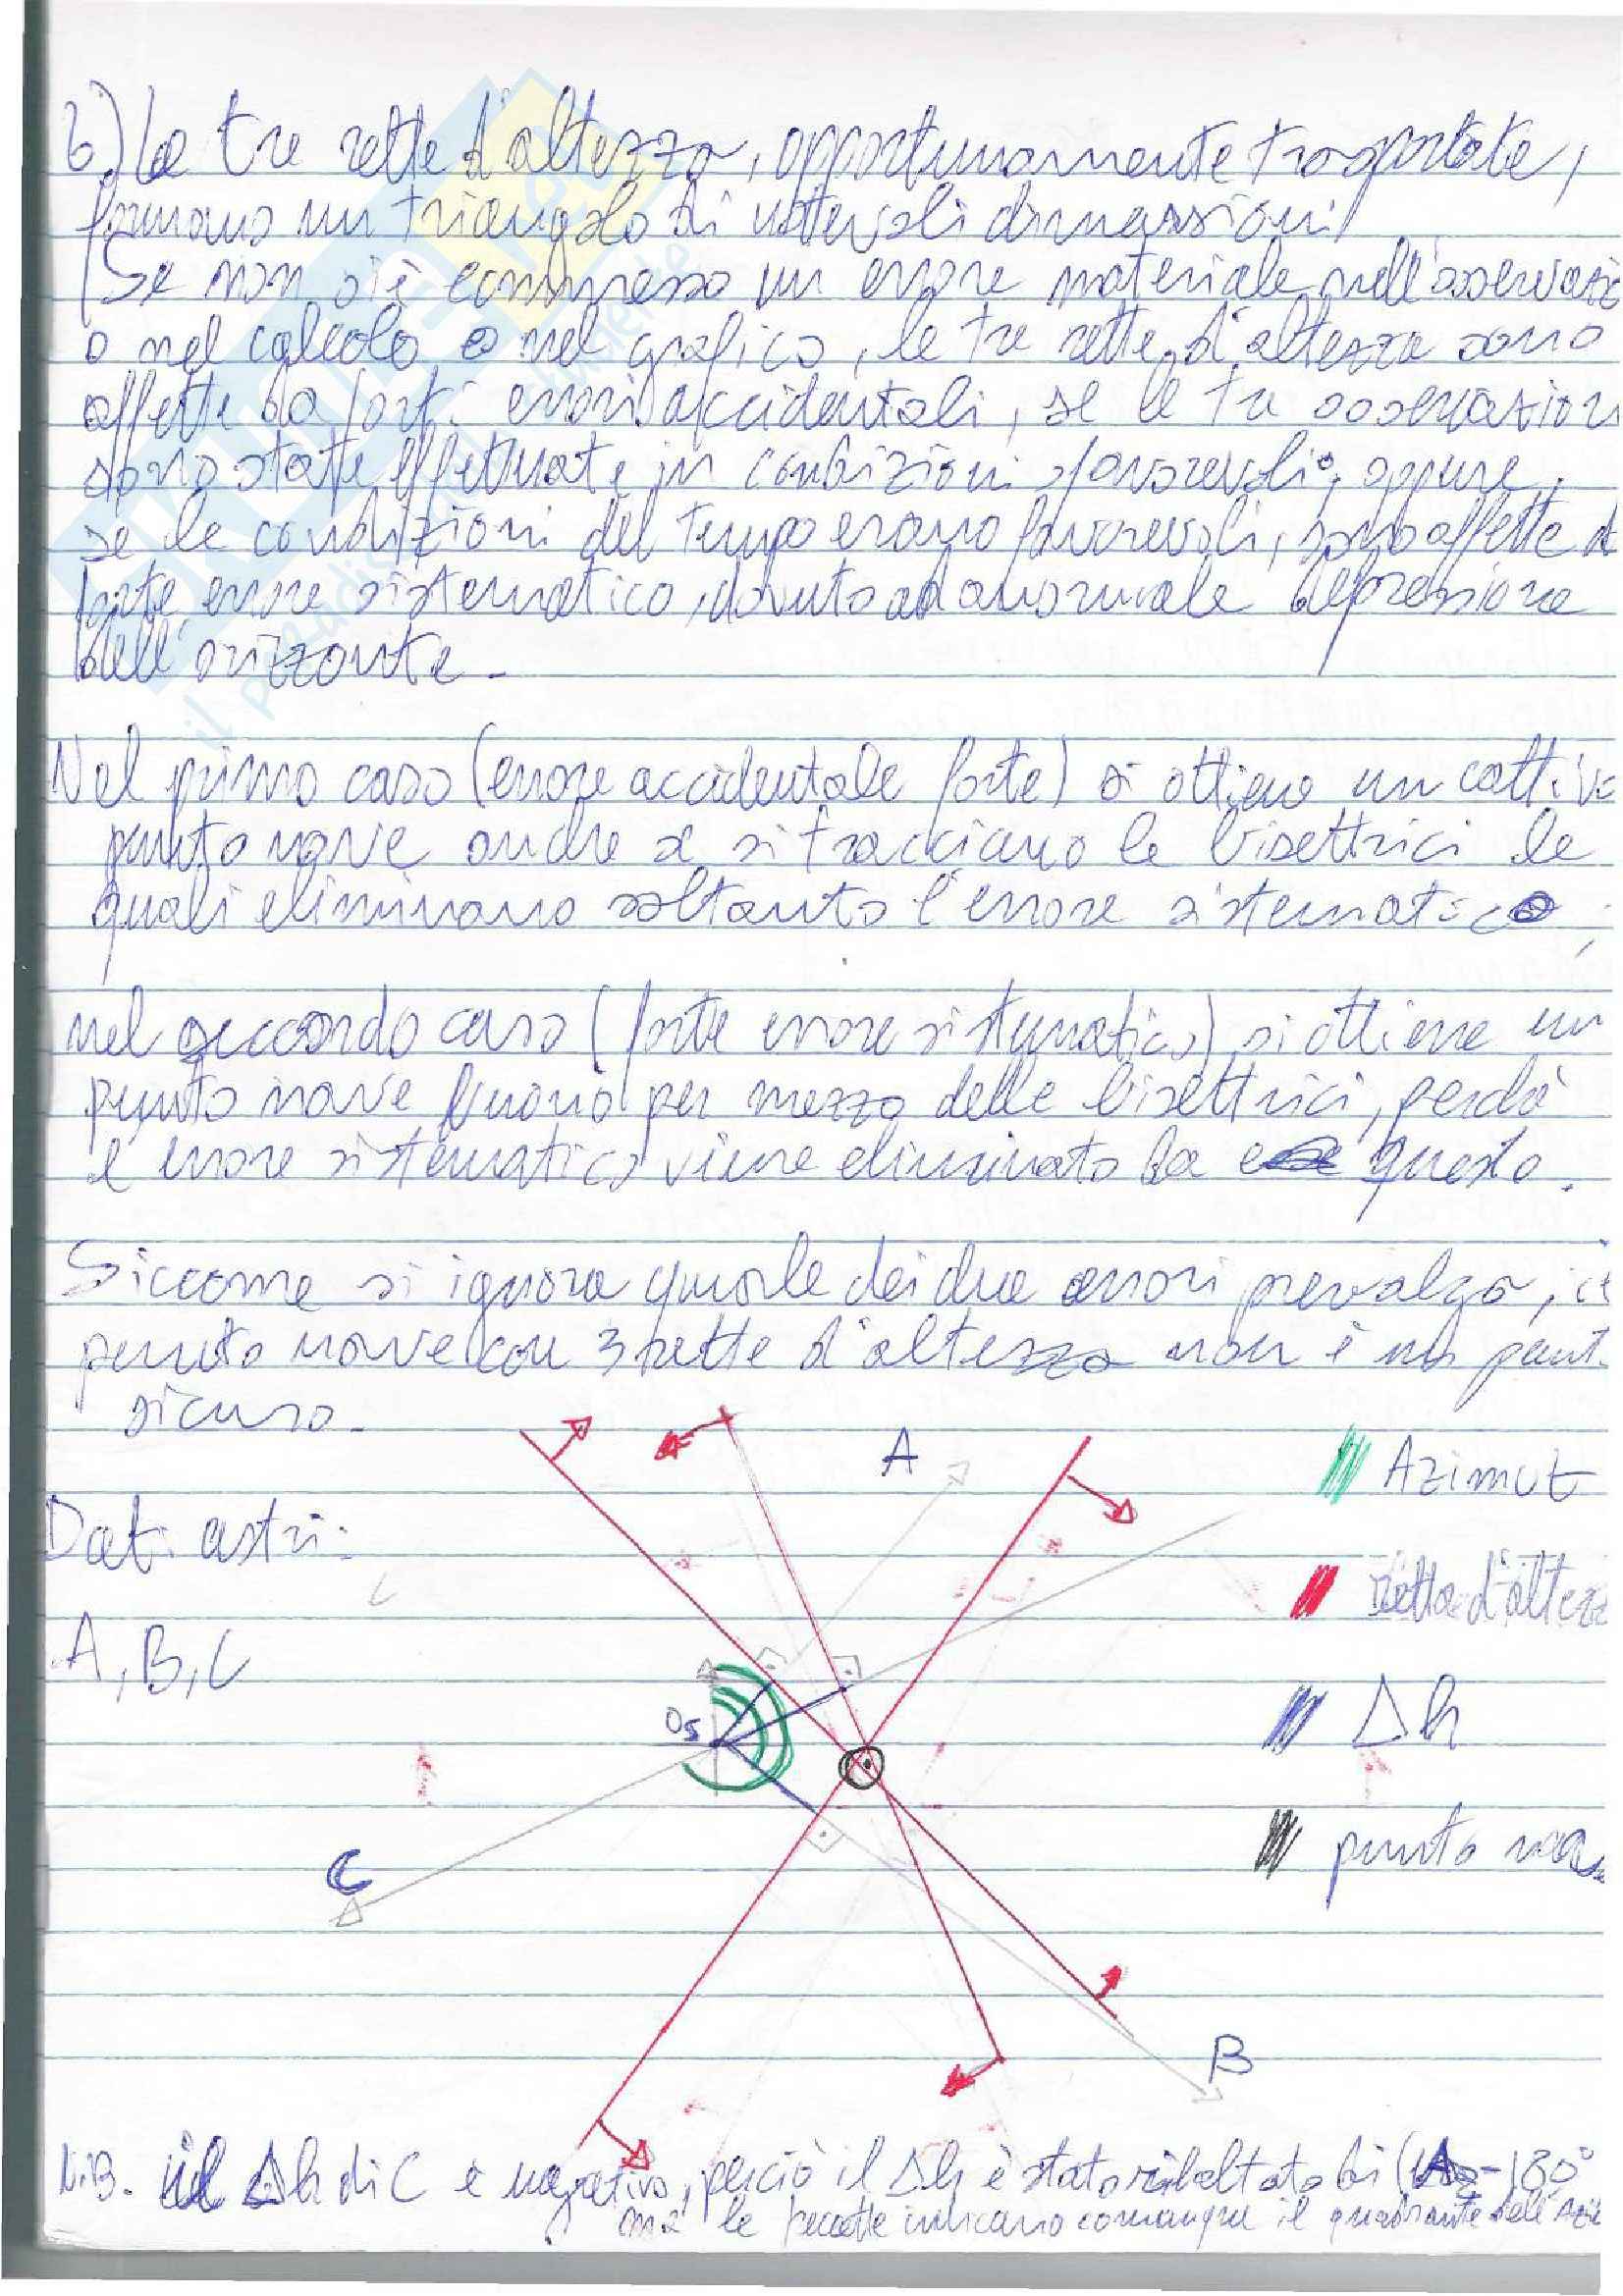 b) Le tre rette d'altezza, opportunamente trasportate,
formano un triangolo di notevoli dimensioni
Se non si è commesso un errore materiale nell'osservazi
o nel calcolo o nel grafico, le tre rette d'altezza sono
affette da forti errori accidentali, se le tre osservazion
sono state effettuate in condizioni sfavorevoli; oppure,
se le condizioni del tempo erano favorevoli, sono affette d
forte errore sistematico, dovuto ad anormale depressione
dell'orizzonte.
Nel primo caso (errore accidentale forte) si ottiene un cattivo
punto nave anche se si tracciano le bisettrici le
quali eliminano soltanto l'errore sistematico;
nel seccondo caso (forte errore sistematico) si ottiene un
punto nave buono per mezzo delle bisettrici, perchè
l'errore sistematico viene eliminato da queste.
Siccome si ignora quale dei due errori prevalga, il
punto nave con 3 rette d'altezza non è un punt
sicuro.
A
Azimut
Dati astri:
retta d'altezz
A, B, C
Os
Δh
C
punto nav
B
N.B. il Δh di C è negativo, perciò il Δh è stato ribaltato di (Az-180°
ma le freccette indicano comunque il quadrante dell'Azi